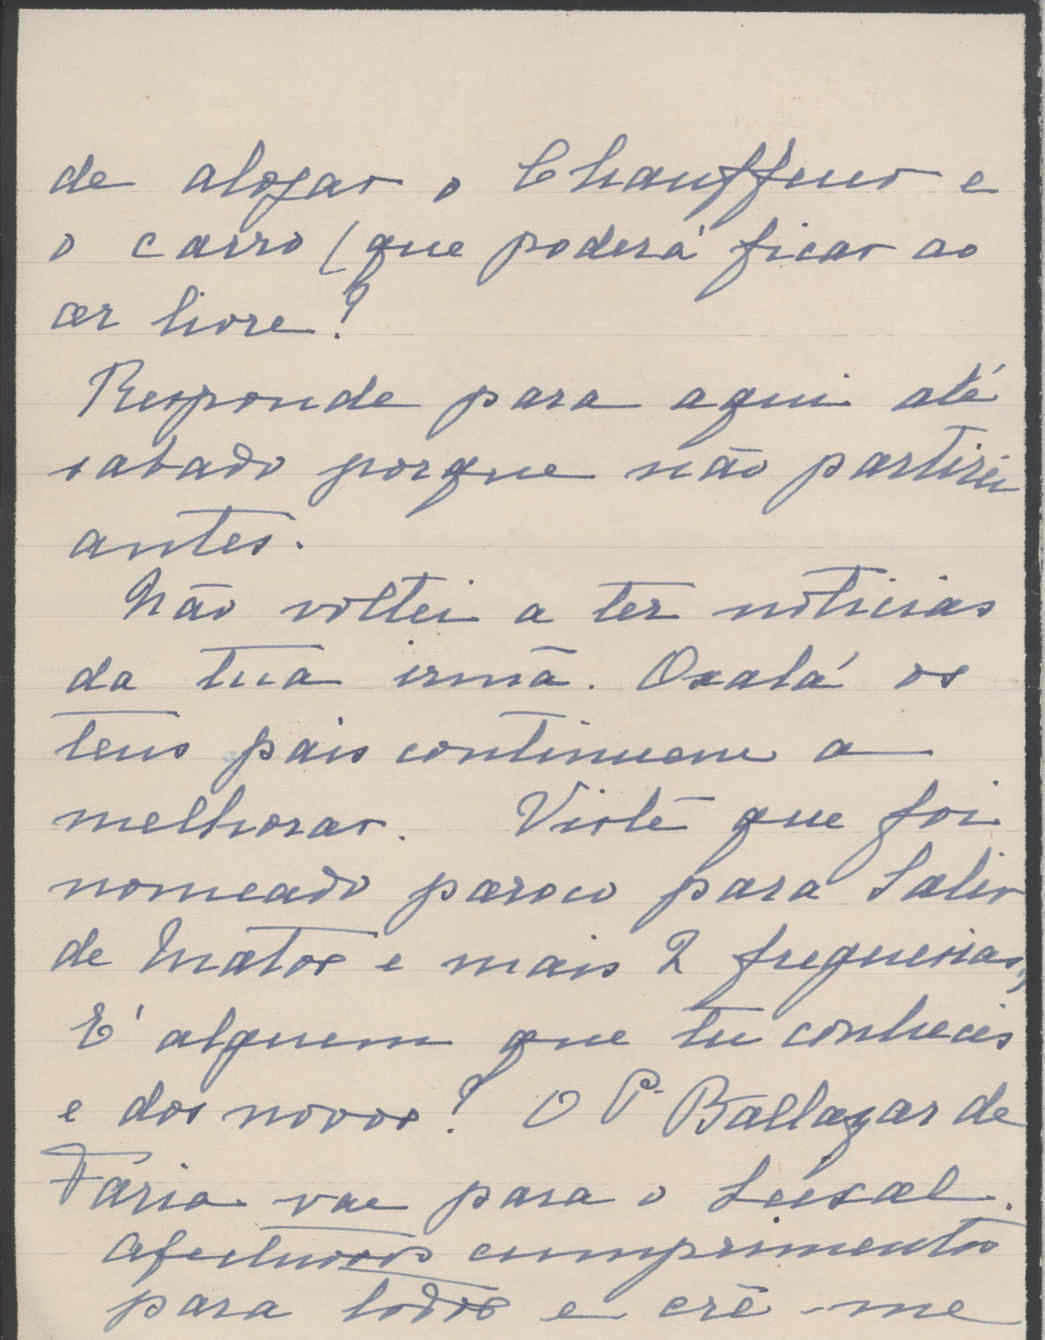 de alojar o Chauffeur e
o carro (que poderá ficar ao
ar livre?
Responde para aqui até
sabado porque não partirei
antes.
Não voltei a ter noticias
da tua irmã. Oxalá os
teus pais continuem a
melhorar. Viste que foi
nomeado paroco para Salir
de Matos e mais 2 freguesias,
É alguem que tu conheces
e dos novos? O P. Baltazar de
Faria vae para o
Afectuosos cumprimentos
para todos e crê-me